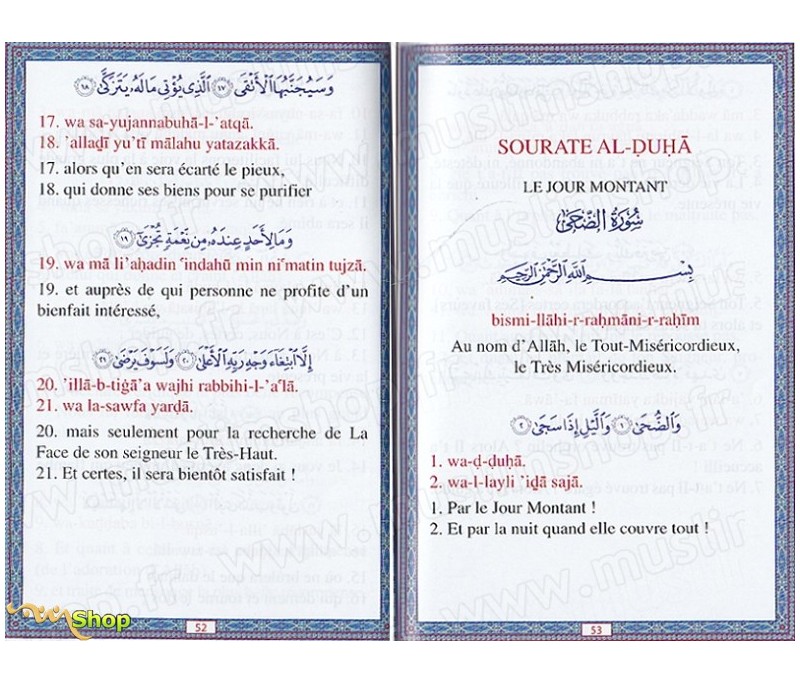 وَسَيُجَنَّبُهَا الْأَتْقَى ۝١٧ الَّذِي يُؤْتِي مَالَهُ يَتَزَكَّى ۝١٨
17. wa sa-yujannabuhā-l-’atqā.
18. ’allaḏī yu’tī mālahu yatazakkā.
17. alors qu’en sera écarté le pieux,
18. qui donne ses biens pour se purifier
وَمَا لِأَحَدٍ عِندَهُ مِن نِّعْمَةٍ تُجْزَى ۝١٩
19. wa mā li’aḥadin ‘indahū min ni‘matin tujzā.
19. et auprès de qui personne ne profite d’un
bienfait intéressé,
إِلَّا ابْتِغَاءَ وَجْهِ رَبِّهِ الْأَعْلَى ۝٢٠ وَلَسَوْفَ يَرْضَى ۝٢١
20. ’illā-b-tiġā’a wajhi rabbihi-l-’a‘lā.
21. wa la-sawfa yarḍā.
20. mais seulement pour la recherche de La
Face de son seigneur le Très-Haut.
21. Et certes, il sera bientôt satisfait !
52
SOURATE AL-ḌUḤĀ
LE JOUR MONTANT
سُورَةُ الضُّحَى
بِسْمِ اللَّهِ الرَّحْمَٰنِ الرَّحِيمِ
bismi-llāhi-r-raḥmāni-r-raḥīm
Au nom d’Allāh, le Tout-Miséricordieux,
le Très Miséricordieux.
وَالضُّحَى ۝١ وَاللَّيْلِ إِذَا سَجَى ۝٢
1. wa-ḍ-ḍuḥā.
2. wa-l-layli ’iḏā sajā.
1. Par le Jour Montant !
2. Et par la nuit quand elle couvre tout !
53
mShop
www.muslimshop.fr